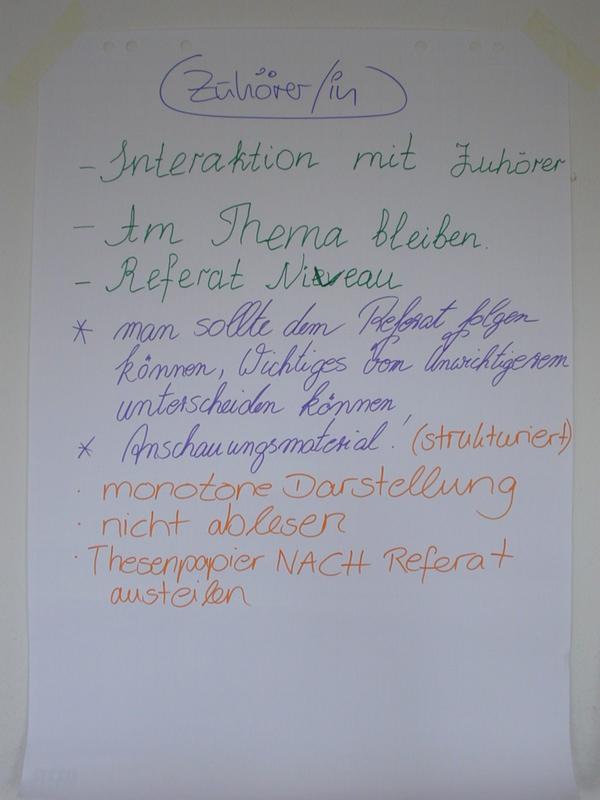 Zuhörer/in
- Interaktion mit Zuhörer
- Am Thema bleiben.
- Referat Niveau
* man sollte dem Referat folgen
können, Wichtiges vom Unwichtigerem
unterscheiden können,
* Anschauungsmaterial! (strukturiert)
· monotone Darstellung
· nicht ablesen
· Thesenpapier NACH Referat
austeilen